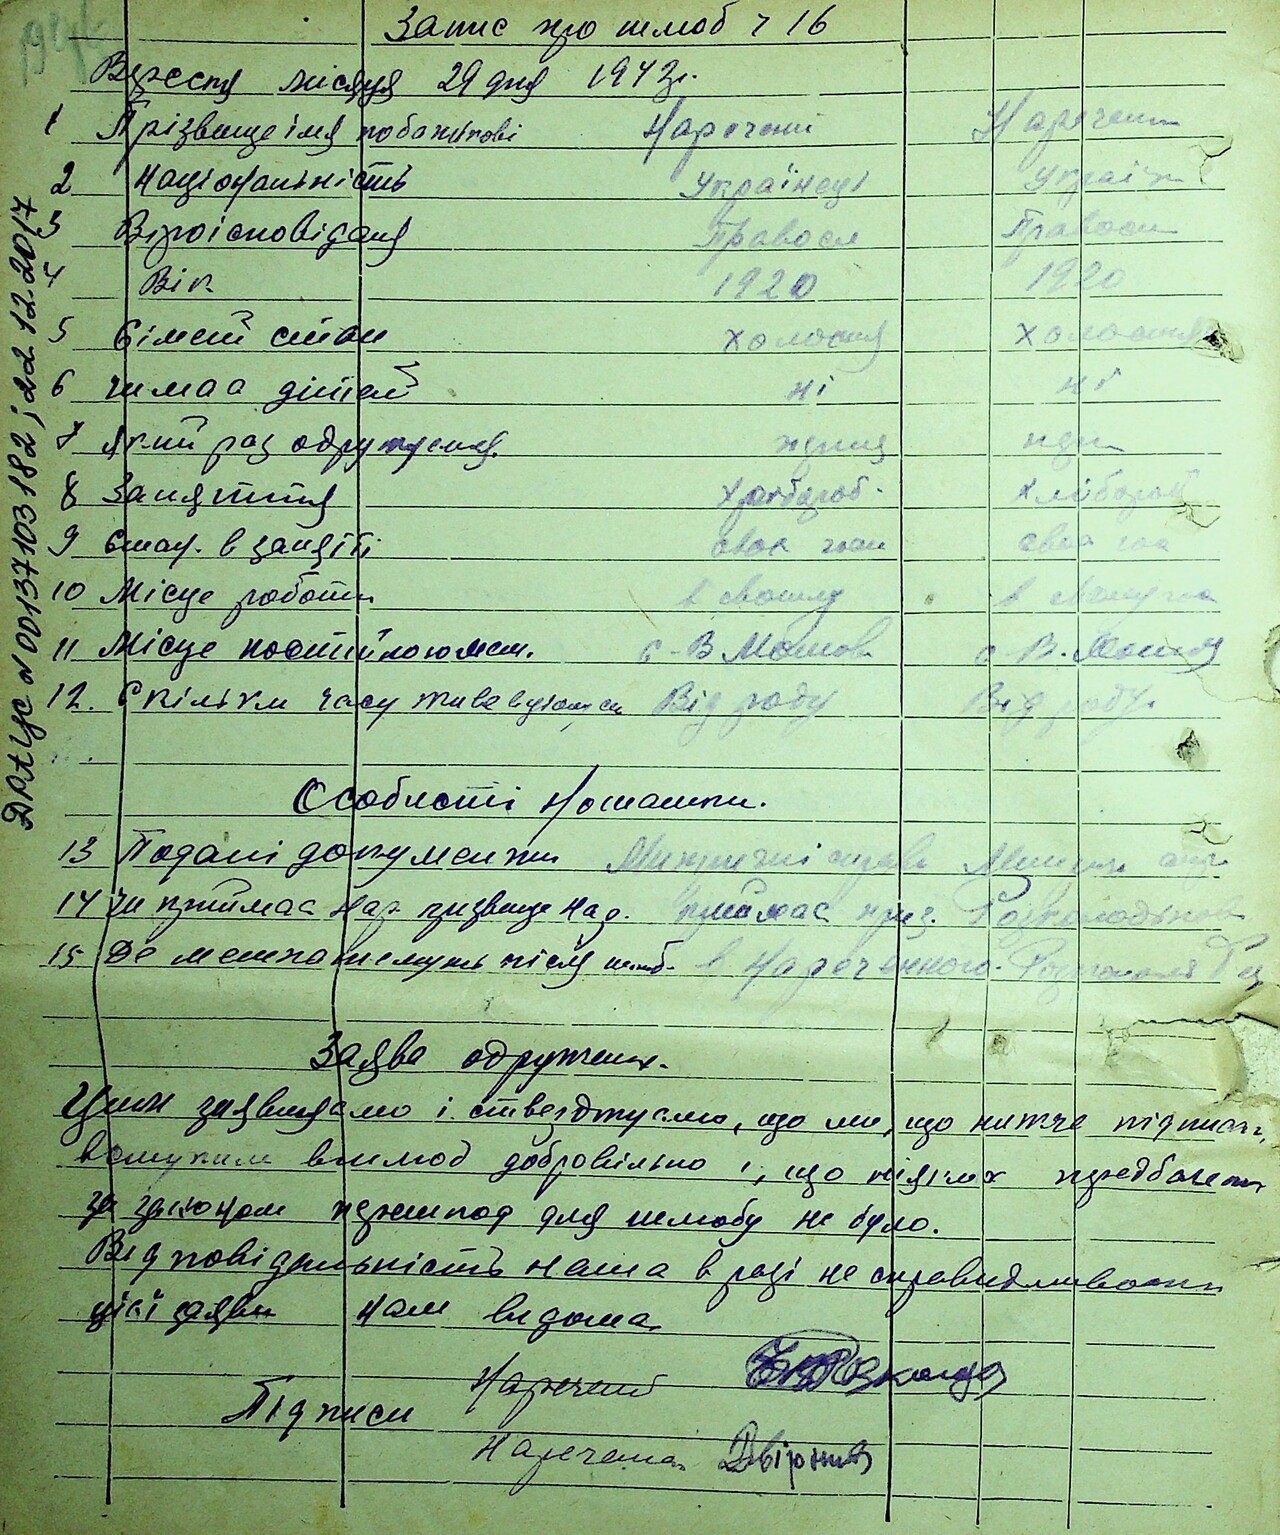 Запис про шлюб ч 16
Вересня місяця 29 дня 1943 г.
1 Прізвище імя побатькові Наречений Наречена
2 Національність Українець Україн
3 Віроісповідання Правосл Правосл
4 Вік 1920 1920
5 Сімейн стан холостя холостя
6 чи маа дітей ні ні
7 який раз одруження перш перш
8 Заняття Хлібороб. Хлібороб
9 Стан. в занятті свой
10 Місце роботи в своему в
11 Місце постійного меш. с. В. Мошов с. В. Мошов
12. Скільки часу живе в цьому см Від роду Від роду
Особисті
13 Подані документи Метричні справ
14 Чи приймає Нар прізвище Нар. приймає приз. Розколодьков
15 Де мешкатимуть після шлюб. в Нареченного.
Заява одружених.
Цим заявляємо і стверджуємо, що ми, що нижче підписан,
вступили в шлюб добровільно і, що ніяких передбачен
за законом перешкод для шлюбу не було.
Відповідальність наша в разі не справедливости
цієї заяви нам відома.
Підписи
Наречений
Наречена
ДРАЦС №00137103182; 22.12.2017